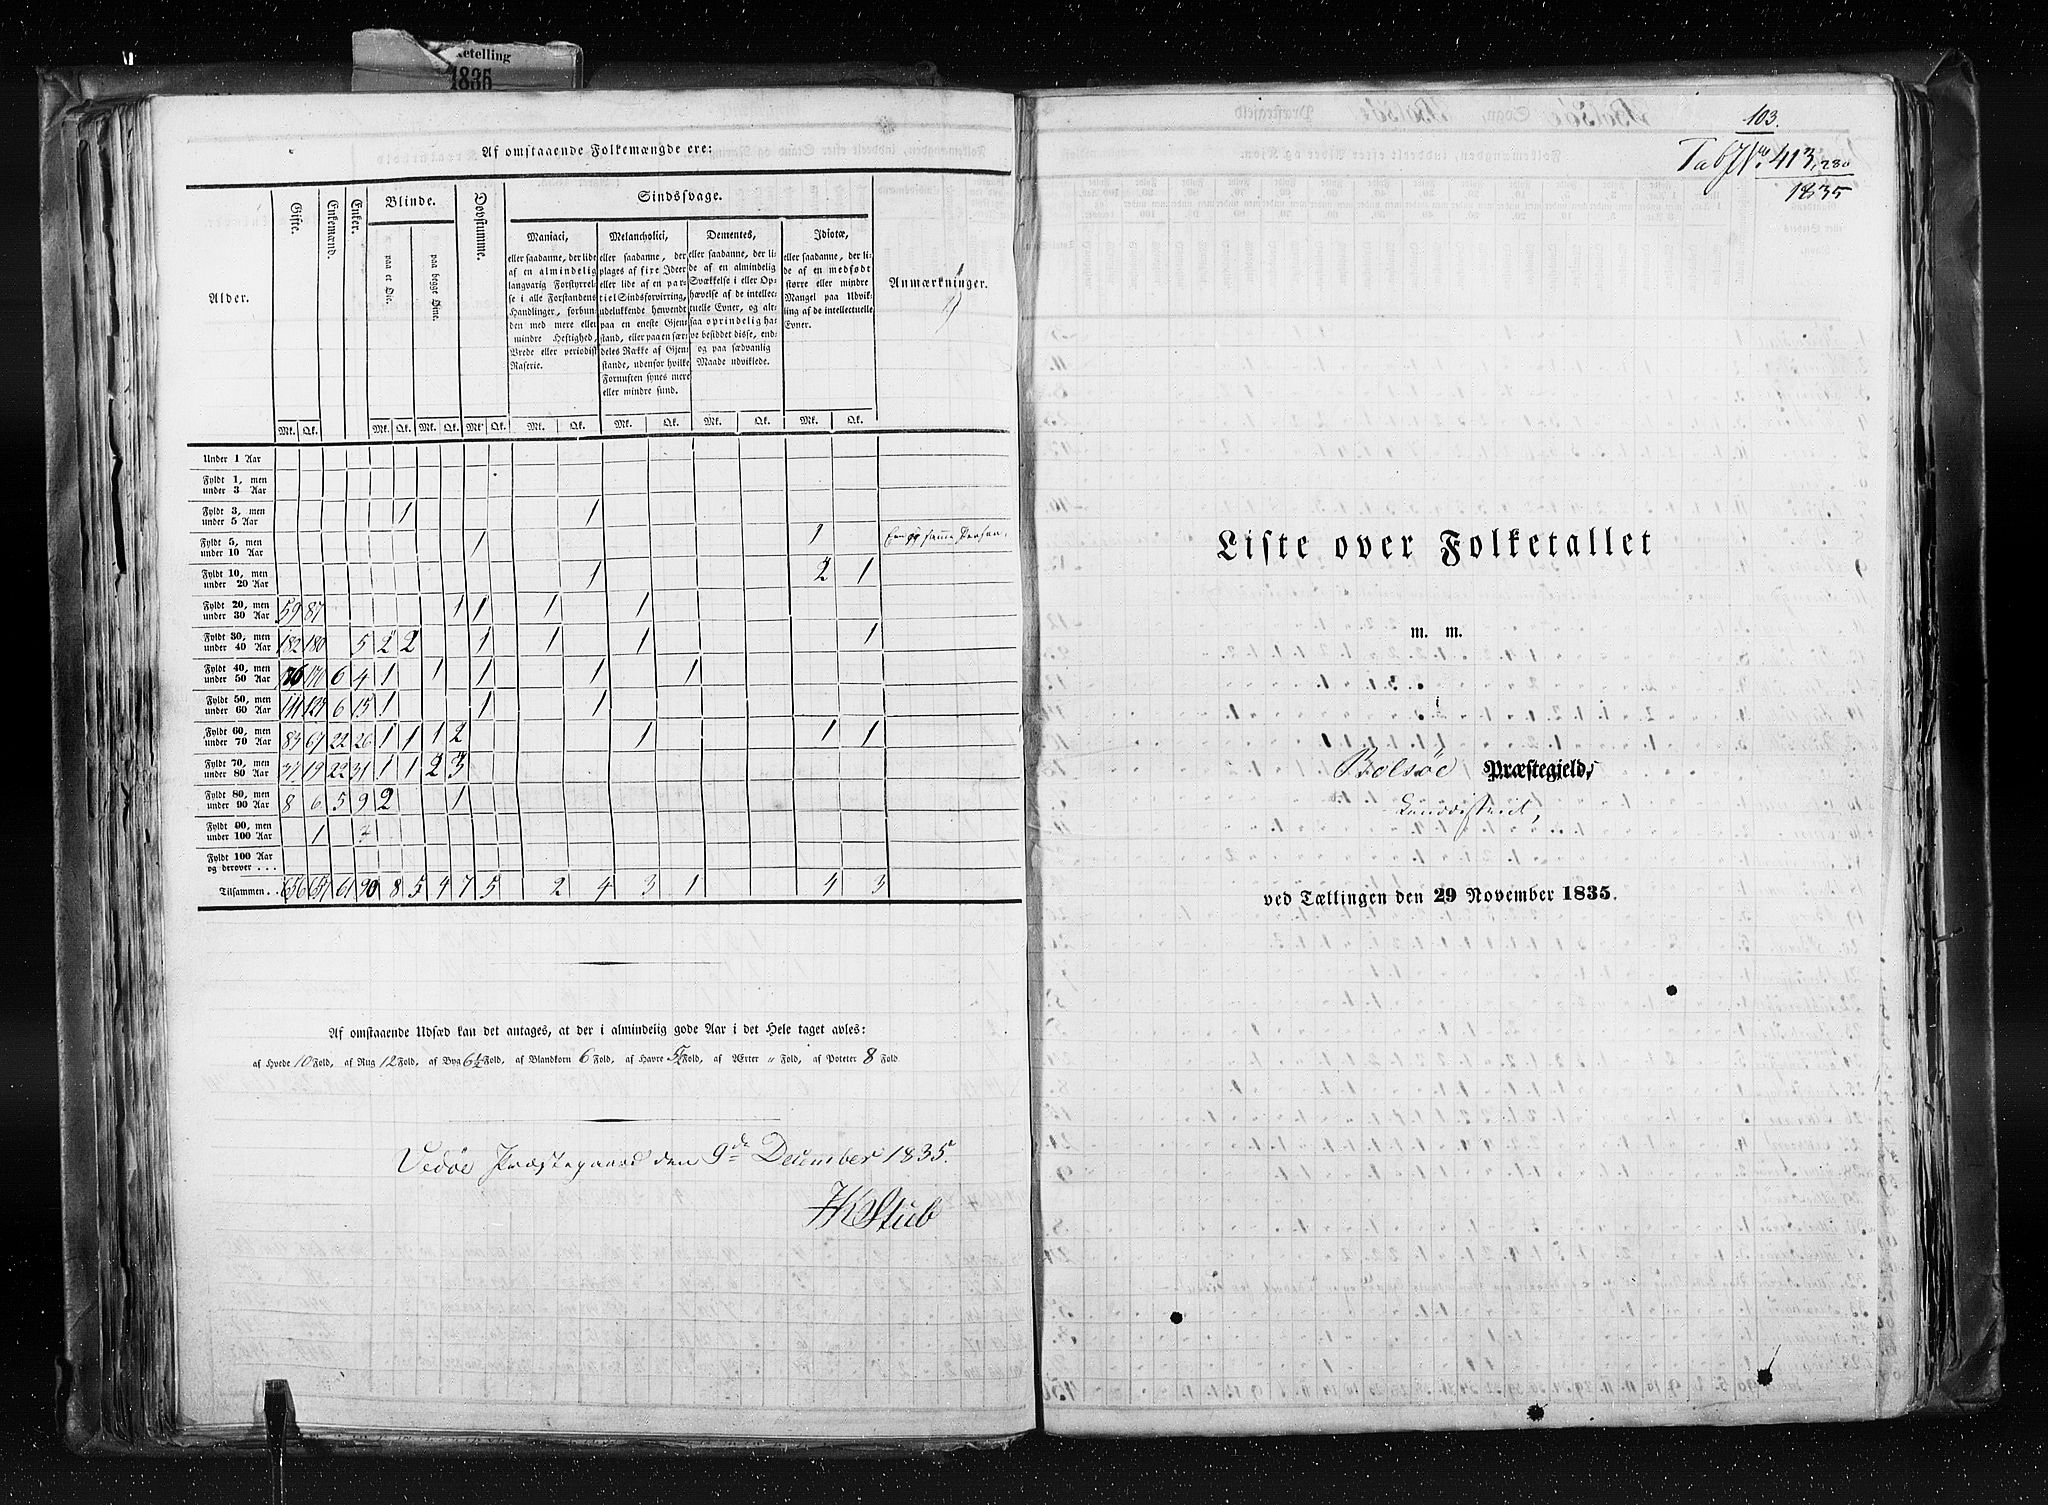 ketelling
1835
Af omstaaende Folkemængde ere:
Alder. Gifte. Enkemænd. Enker. Blinde. Dovstumme. Sindssvage. Anmærkninger.
paa et Øie. paa begge Øine.
Maniaci,
eller saadanne, der lide
af en almindelig
langvarig Forstyrrel-
se i alle Forstandens
Handlinger, forbun-
den med mere eller
mindre Heftighed,
Vrede eller periodisk
Raserie.
Melancholici,
eller saadanne, der
plages af fixe Ideer
eller lide af en par-
tiel Sindsforvirring,
udelukkende henvendt
paa en eneste Gjen-
stand, eller paa en sær-
deles Række af Gjen-
stande, udenfor hvilke
Fornuften synes mere
eller mindre sund.
Dementes,
eller saadanne, der li-
de af en almindelig
Svækkelse i eller Op-
hævelse af de intellec-
tuelle Evner, og alt-
saa oprindelig ha-
ve besiddet disse, end-
og paa sædvanlig
Maade udviklede.
Idiotæ,
eller saadanne, der li-
de af en medfødt
større eller mindre
Mangel paa Udvik-
ling af de intellectuelle
Evner.
Mk. Qk. Mk. Qk. Mk. Qk. Mk. Qk. Mk. Qk. Mk. Qk. Mk. Qk. Mk. Qk.
Under 1 Aar
Fyldt 1, men
under 3 Aar
Fyldt 3, men
under 5 Aar 1 1
Fyldt 5, men
under 10 Aar 1 1 samme Person.
Fyldt 10, men
under 20 Aar 1 2 1
Fyldt 20, men
under 30 Aar 59 87 1 1 1 1
Fyldt 30, men
under 40 Aar 182 180 5 2 2 1 1 1 1
Fyldt 40, men
under 50 Aar 6 4 1 1 1 1 1
Fyldt 50, men
under 60 Aar 6 15 1 1 1
Fyldt 60, men
under 70 Aar 83 61 22 26 1 1 1 2 1 1 1
Fyldt 70, men
under 80 Aar 37 19 22 31 1 1 2 3
Fyldt 80, men
under 90 Aar 8 6 5 9 2 1
Fyldt 90, men
under 100 Aar 1
Fyldt 100 Aar
og derover . . .
Tilsammen . . 656 654 61 90 8 5 4 7 5 2 4 3 1 4 3
Af omstaaende Udsæd kan det antages, at der i almindelig gode Aar i det Hele taget avles:
af Hvede 10 Fold, af Rug 12 Fold, af Byg 6½ Fold, af Blandkorn 6 Fold, af Havre Fold, af Ærter " Fold, af Poteter 8 Fold.
Vedöe Præstegaard den 9de December 1835.
HK Stub
103.
Tab No. 413, 280
1835
Liste over Folketallet
m. m.
i
Bolsöe Præstegjelds
Landdistrict,
ved Tællingen den 29 November 1835.